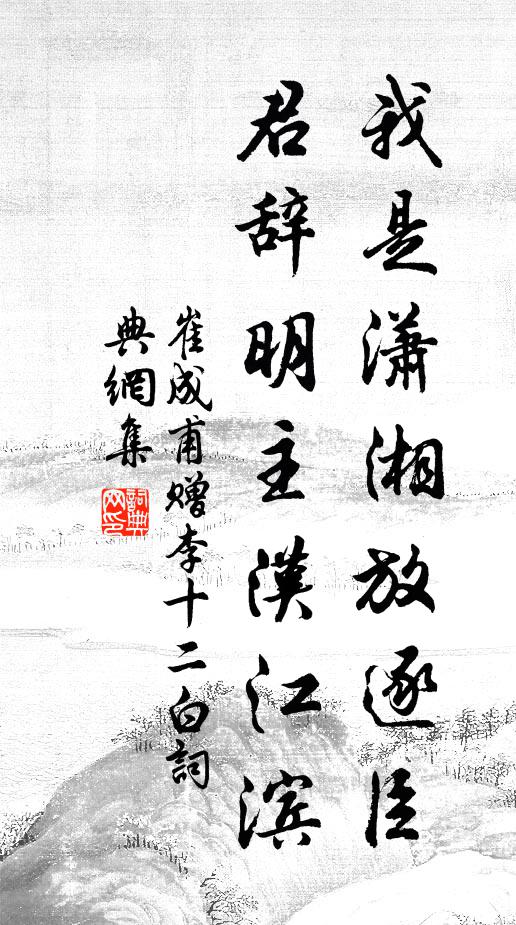 我是潇湘放逐臣
君辞明主漢江滨
崔成甫赠李十二白詞
典網集
詞典
网印